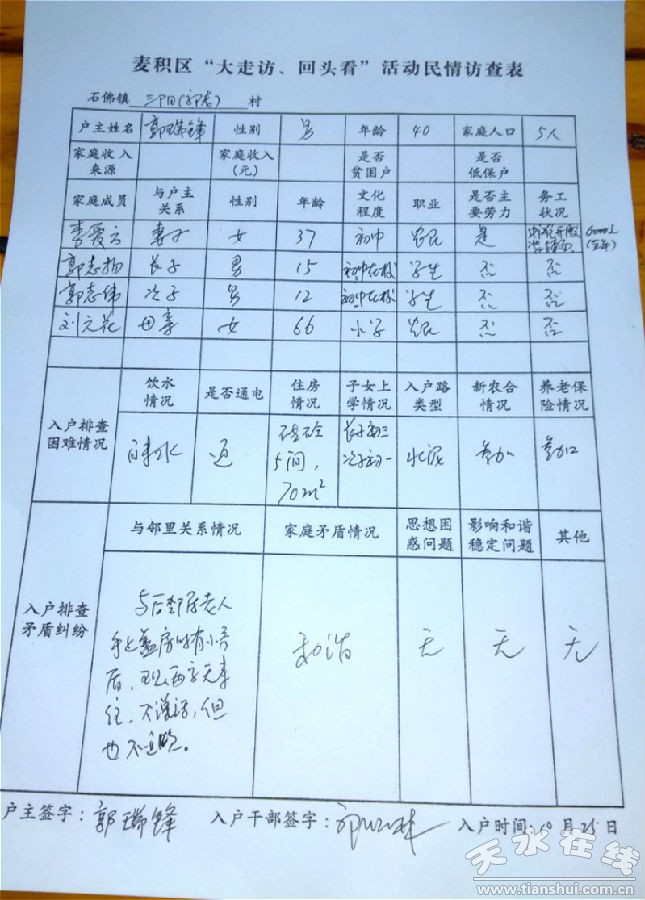 麦积区“大走访、回头看”活动民情访查表
石佛镇 村
户主姓名 郭瑞锋 性别 男 年龄 40 家庭人口 5人
家庭收入来源 家庭收入(元) 是否贫困户 是否低保户
家庭成员 与户主关系 性别 年龄 文化程度 职业 是否主要劳力 务工状况
李爱云 妻子 女 37 初中 农民 是
郭志扬 长子 男 15 初中在校 学生 否 否
郭志伟 次子 男 12 初中在校 学生 否 否
刘元花 母亲 女 66 小学 农民 否 否
入户排查困难情况 饮水情况 是否通电 住房情况 子女上学情况 入户路类型 新农合情况 养老保险情况
自来水 通 砖混 5间,70m² 长子初三 次子初一 水泥 参加 参加
入户排查矛盾纠纷 与邻里关系情况 家庭矛盾情况 思想困惑问题 影响和谐稳定问题 其他
与后邻居老人
手上盖房时有小矛
盾,现两家无来
往,不说话,但
也不
和谐 无 无 无
户主签字:郭瑞锋 入户干部签字: 入户时间:10月25日
天水在线
www.tianshui.com.cn